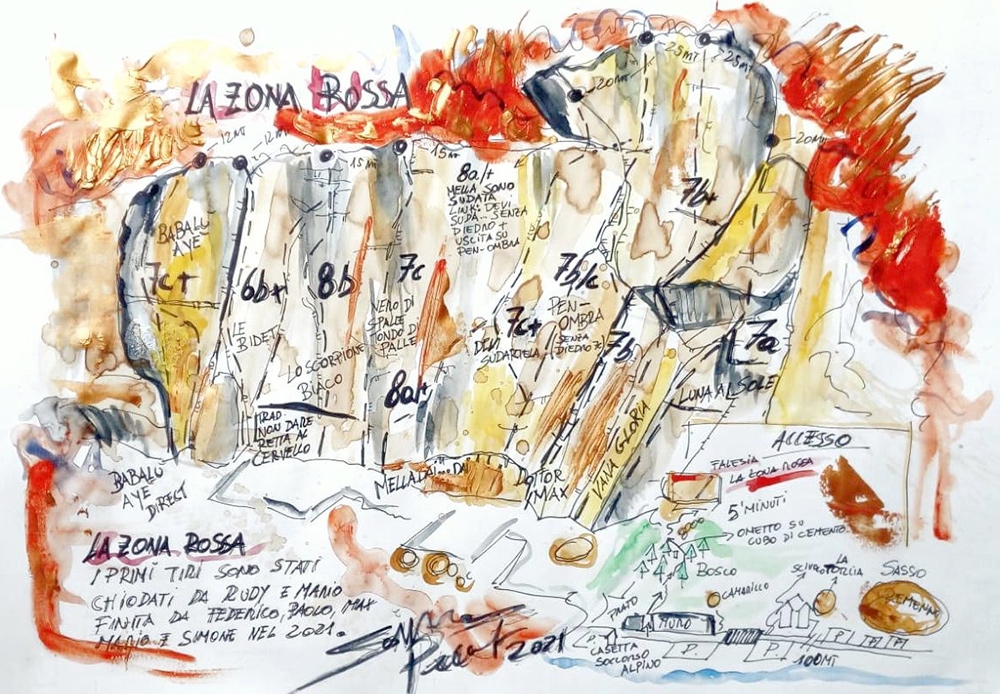 LA ZONA ROSSA
12MT
12MT
15MT
15MT
20MT
25MT
25MT
20MT
BABALU
AYE
7c+
6b+
8b
7c
8a/+
MELLA SONO
SUDATA
LINK: DEVI
SUDA... SENZA
DIEDRO +
USCITA SU
PEN-OMBRA
7b+
7b/c
7c+
PEN-
OMBRA
SENZA
DIEDRO 7c
7b
7a
LE
BIDET
LO SCORPIONE
BIACO
NERO DI
SPALLE
TONDO DI
PALLE
8a/+
DEVI
SUDARTELA
LUNA AL SOLE
VANA GLORIA
TRAD-
NON DARE
RETTA AL
CERVELLO
BABALU
AYE
DIRECT
MELLA DAI...DAI
DOTTOR
MAX
ACCESSO
FALESIA
LA ZONA ROSSA
5 MINUTI
OMETTO SU
CUBO DI CEMENTO
BOSCO
PRATO
CAMARILLO
SCIVOLO
LA
SASSO
REMENNO
MURO
P.
CASETTA
SOCCORSO
ALPINO
P.
P.
P
100MT
LA ZONA ROSSA
I PRIMI TIRI SONO STATI
CHIODATI DA RUDY E MARIO
FINITA DA FEDERICO, PAOLO, MAX
MARIO E SIMONE NEL 2021.
2021